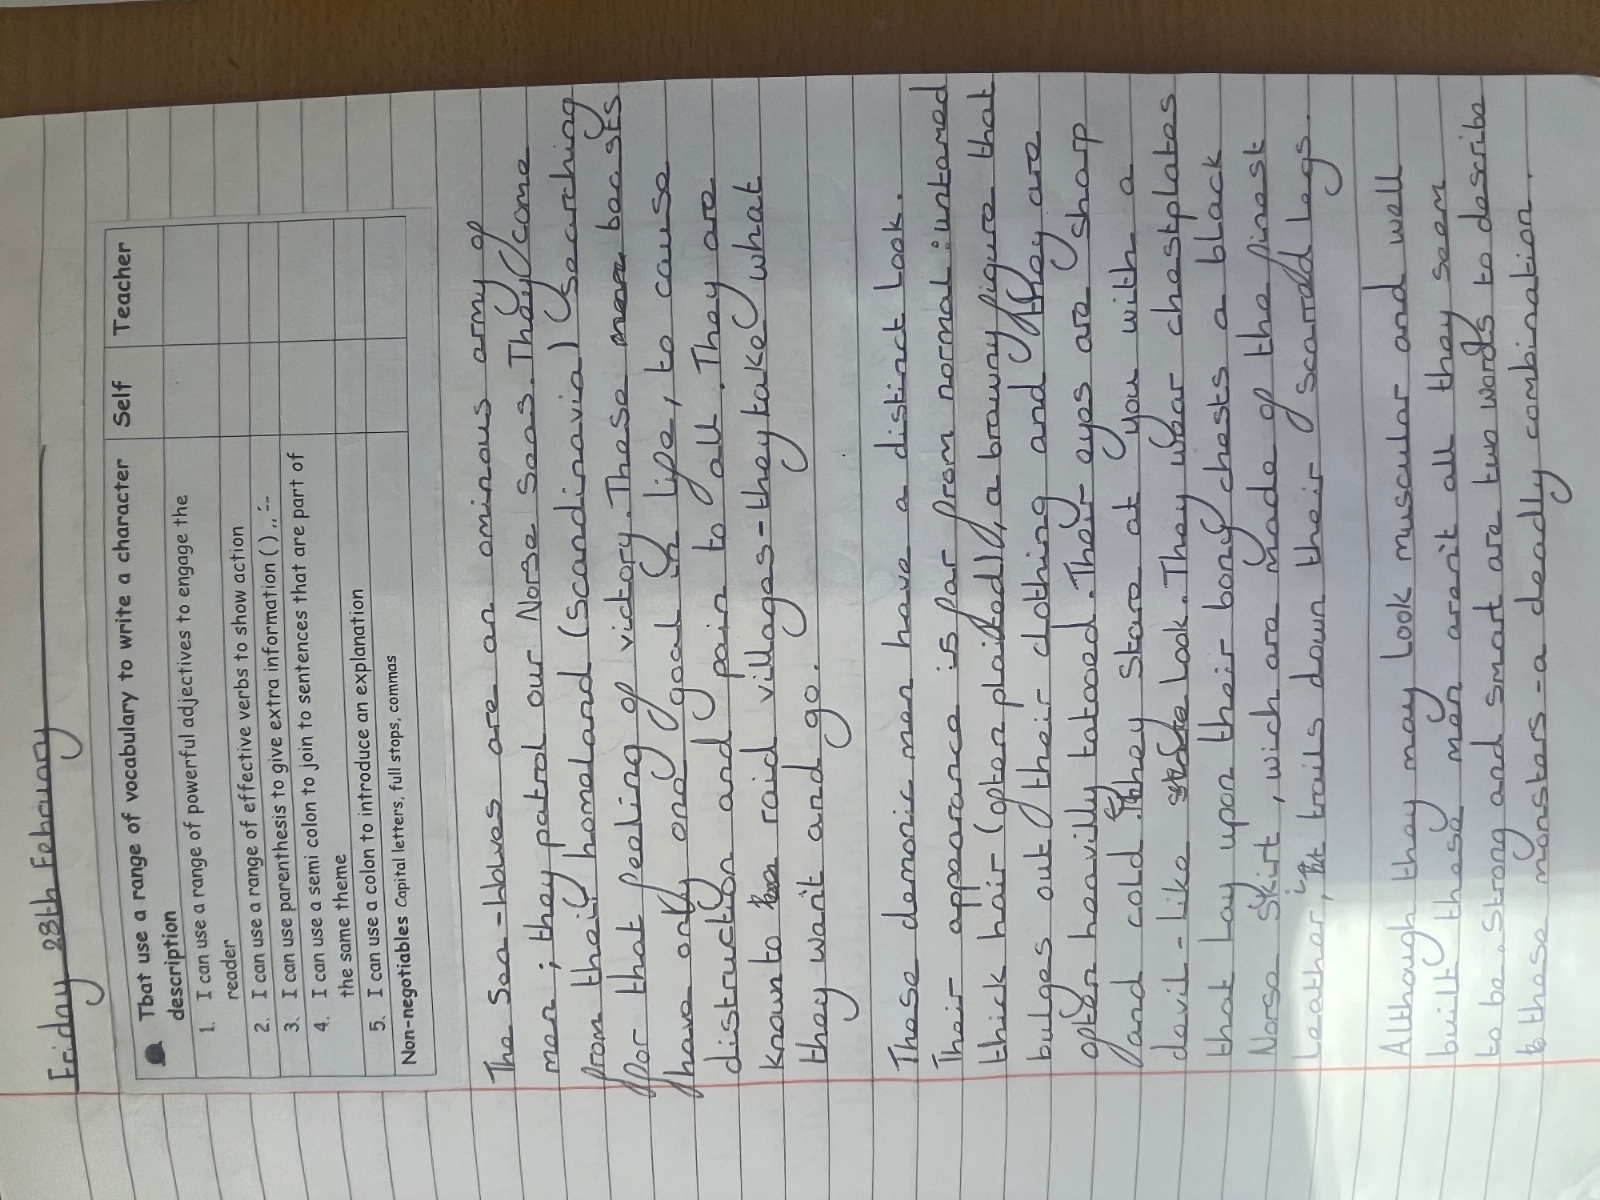 Friday 28th February
That use a range of vocabulary to write a character description Self Teacher
1. I can use a range of powerful adjectives to engage the
reader
2. I can use a range of effective verbs to show action
3. I can use parenthesis to give extra information ( ) ,, --
4. I can use a semi colon to join to sentences that are part of
the same theme
5. I can use a colon to introduce an explanation
Non-negotiables Capital letters, full stops, commas
The Sea-Wolves are an ominous army of
men ; they patrol our Norse seas. They come
from their homeland (Scandinavia) searching
for that feeling of victory. These beasts
have only one goal in life, to cause
distruction and pain to all. They are
known to raid villages - they take what
they want and go.
These demonic men have a distinct look.
Their apperance is far from normal : untamed
thick hair (often plaited), a brawny figure that
bulges out their clothing and they are
often heavilly tatooed. Their eyes are sharp
and cold. They stare at you with a
devil-like look. They wear chestplates
that lay upon their bony chests a black
Norse skirt, wich are made of the finest
leather, it trails down their scarrd legs.
Although they may look muscular and well
built these men aren't all they seem
to be. Strong and smart are two words to describe
these monsters - a deadly combination.